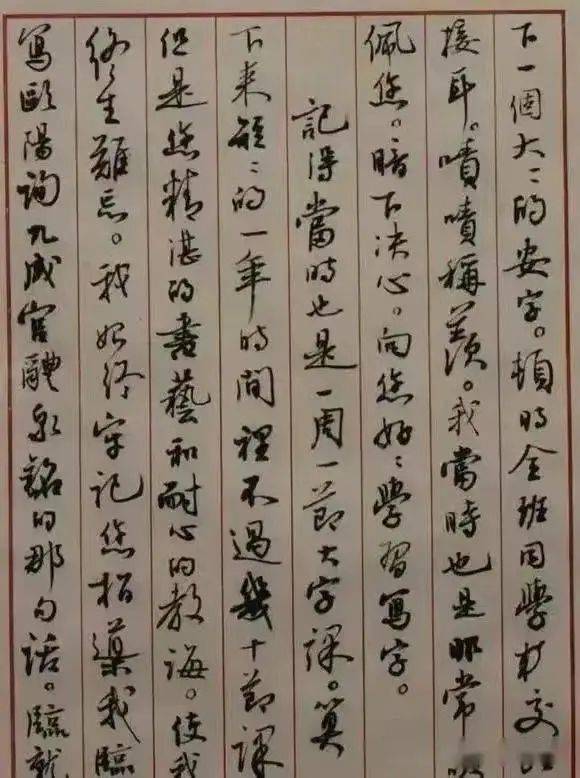 下一個大〻的安字。頓時全班同學材交頭
接耳。嘖嘖稱羨。我當時也是非常
佩您。暗下决心。向您好〻學習寫字。
記得當時也是一周一節大字課。算
下来短〻的一年時間裡不過幾十節課
但是您精湛的書藝和耐心的教誨。使我
終生難忘。我始終牢记您指導我臨
寫歐陽詢九成宫醴泉銘的那句话。臨就